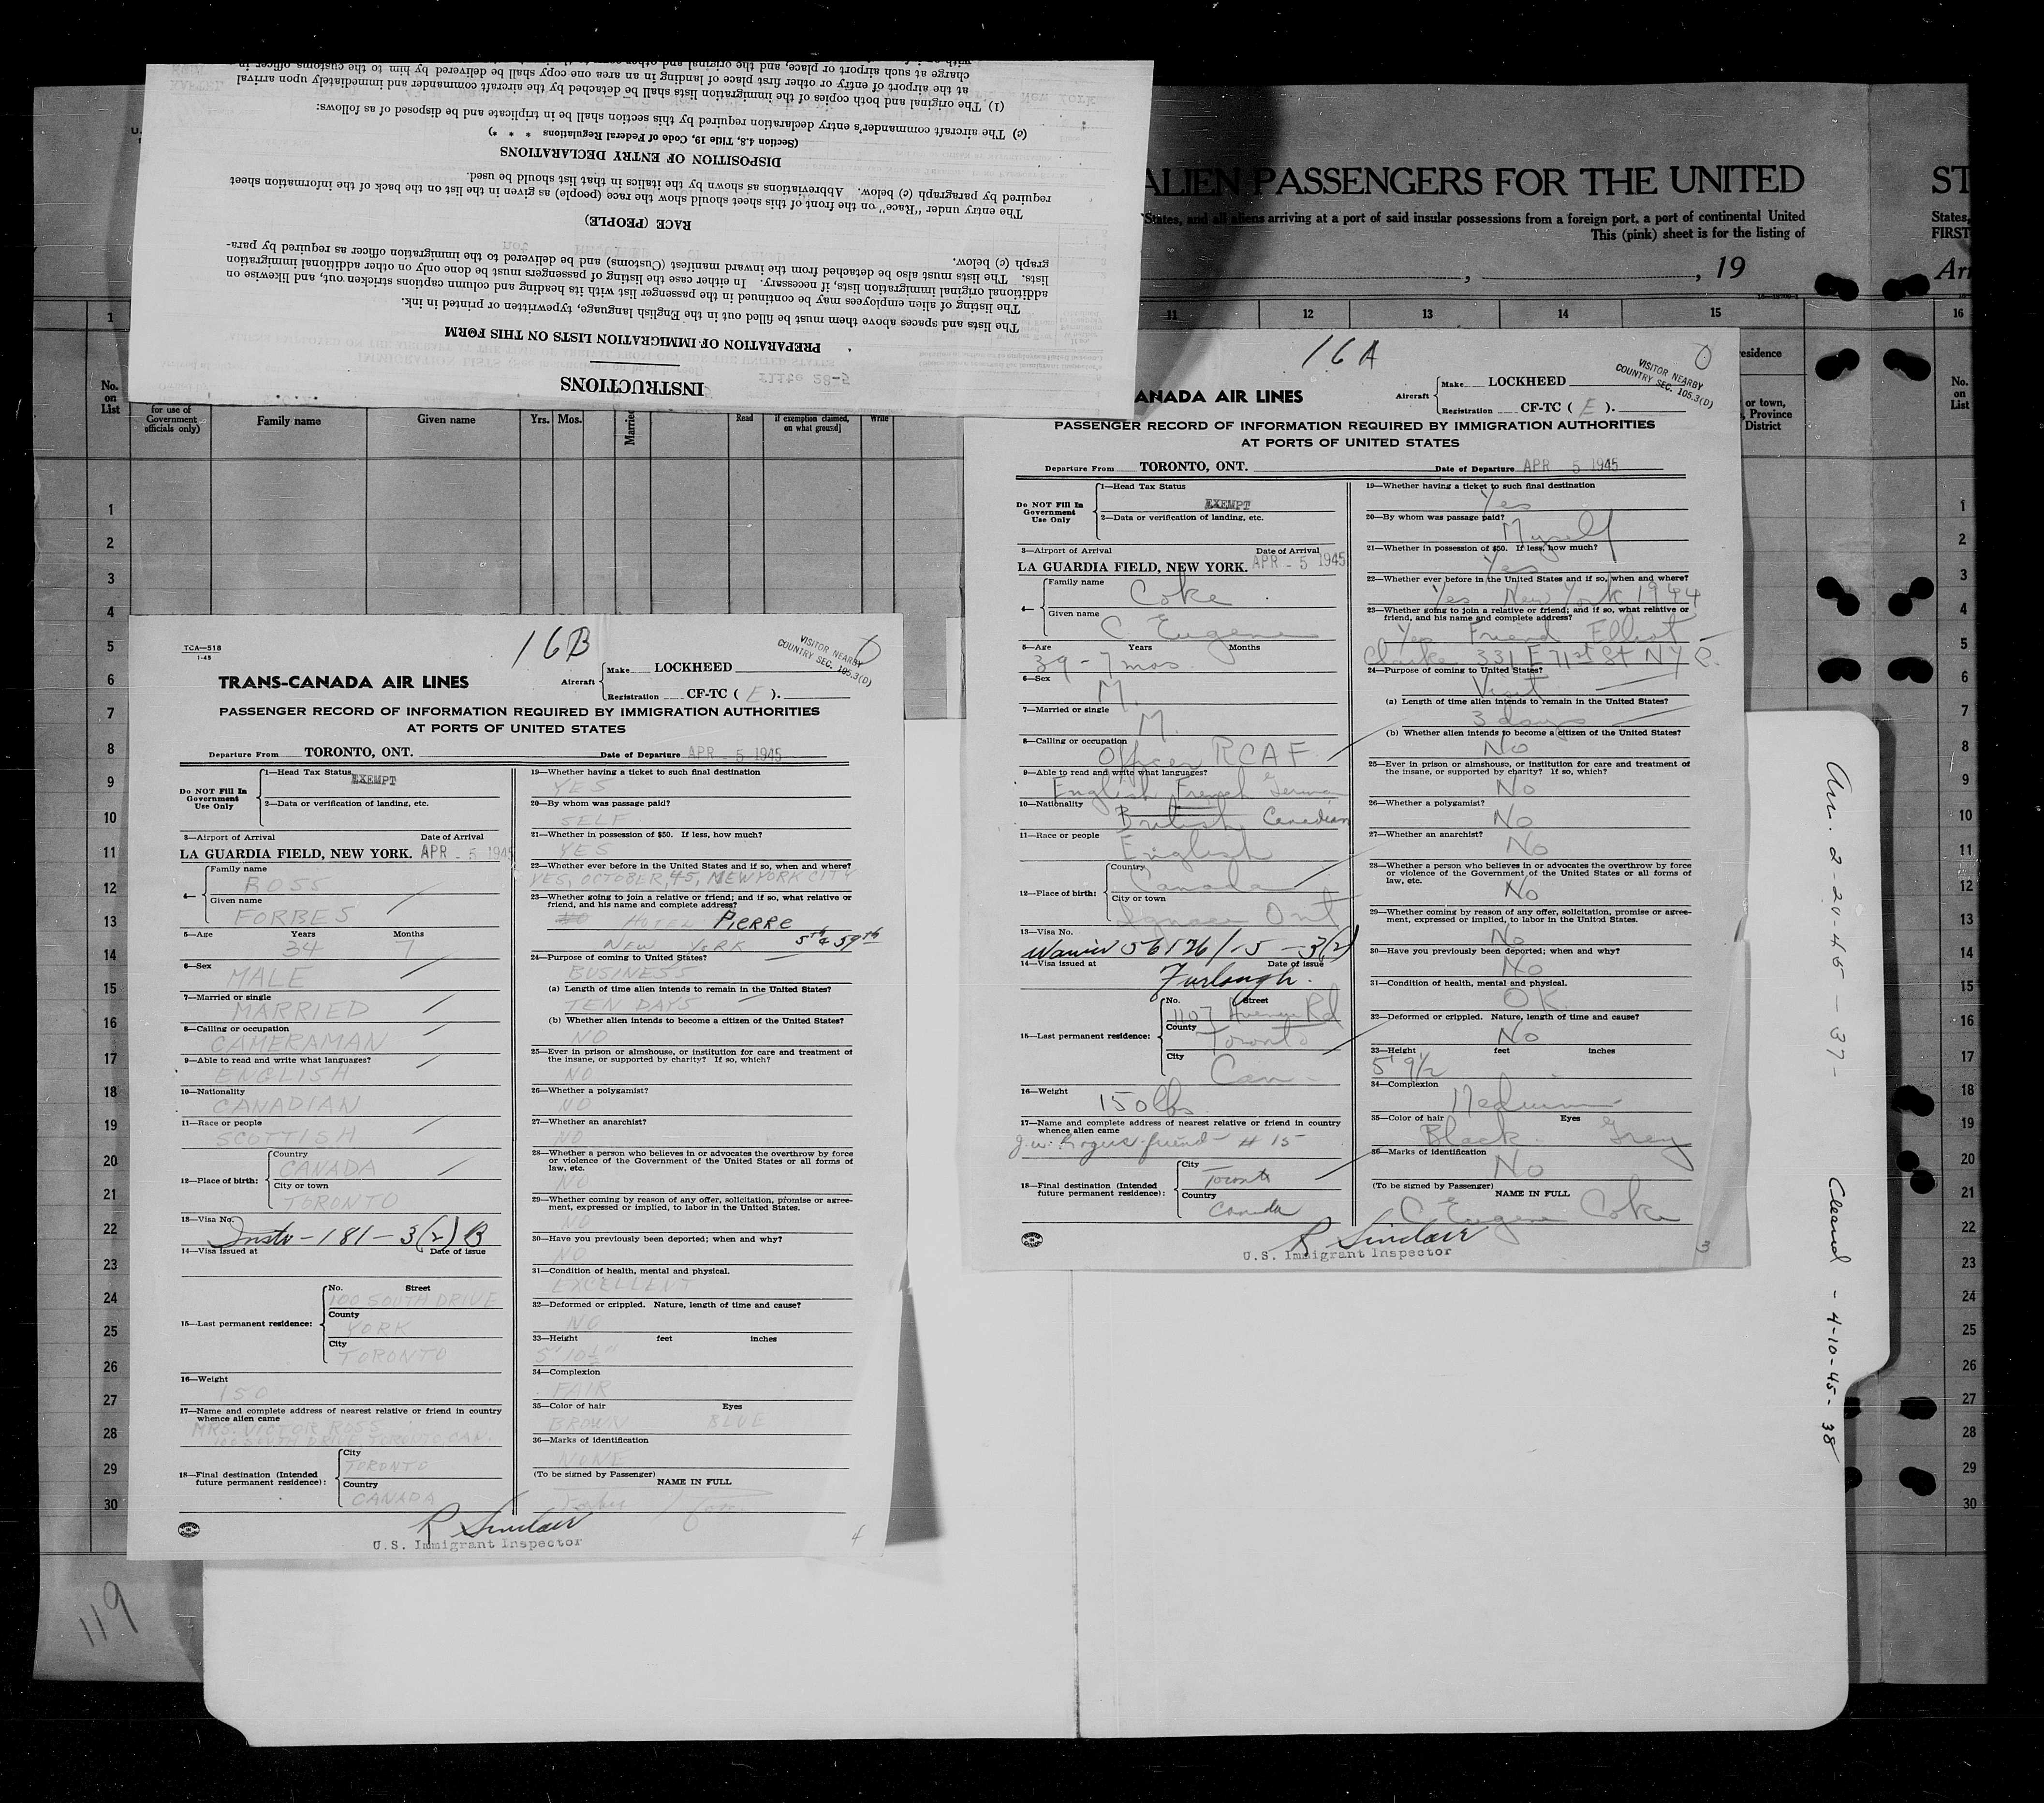 INSTRUCTIONS
PREPARATION OF IMMIGRATION LISTS ON THIS FORM
The lists and spaces above them must be filled out in the English language, typewritten or printed in ink.
The listing of alien employees may be continued in the passenger list with its heading and column captions stricken out, and likewise on
additional original immigration lists, if necessary. In either case the listing of passengers must be done only on other additional immigration
lists. The lists must also be detached from the inward manifest (Customs) and be delivered to the immigration officer as required by para-
graph (c) below.
RACE (PEOPLE)
The entry under "Race" on the front of this sheet should show the race (people) as given in the list on the back of the information sheet
required by paragraph (c) below. Abbreviations as shown by the italics in that list should be used.
DISPOSITION OF ENTRY DECLARATIONS
(Section 4.8, Title 19, Code of Federal Regulations * * *)
(c) The aircraft commander's entry declaration required by this section shall be in triplicate and be disposed of as follows:
(1) The original and both copies of the immigration lists shall be detached by the aircraft commander and immediately upon arrival
at the airport of entry or other first place of landing in an area one copy shall be delivered by him to the customs officer in
charge at such airport or place, and the original and other
ALIEN PASSENGERS FOR THE UNITED
States, and all aliens arriving at a port of said insular possessions from a foreign port, a port of continental United
This (pink) sheet is for the listing of
, 19
ST
States,
FIRST
Arr
1 11 12 13 14 15 16
No.
on
List
for use of
Government
officials only)
Family name
Given name
Yrs. Mos.
Married
Read
if exemption claimed,
on what ground]
Write
residence
or town,
Province
District
No.
on
List
1
2
3
4
5
6
7
8
9
10
11
12
13
14
15
16
17
18
19
20
21
22
23
24
25
26
27
28
29
30
119
TCA—518
1-45
16B
VISITOR NEARBY
COUNTRY SEC. 105.3(D)
0
TRANS-CANADA AIR LINES
Aircraft
Make LOCKHEED
Registration CF-TC ( E ).
PASSENGER RECORD OF INFORMATION REQUIRED BY IMMIGRATION AUTHORITIES
AT PORTS OF UNITED STATES
Departure From TORONTO, ONT. Date of Departure APR 5 1945
Do NOT Fill In
Government
Use Only
1—Head Tax Status EXEMPT
2—Data or verification of landing, etc.
3—Airport of Arrival Date of Arrival
LA GUARDIA FIELD, NEW YORK. APR - 5 1945
4—
Family name
ROSS
Given name
FORBES
5—Age Years Months
34 7
6—Sex
MALE
7—Married or single
MARRIED
8—Calling or occupation
CAMERAMAN
9—Able to read and write what languages?
ENGLISH
10—Nationality
CANADIAN
11—Race or people
SCOTTISH
12—Place of birth:
Country
CANADA
City or town
TORONTO
13—Visa No.
Instr - 181 - 3(2) B
14—Visa issued at Date of issue
15—Last permanent residence:
No. Street
100 SOUTH DRIVE
County
YORK
City
TORONTO
16—Weight
150
17—Name and complete address of nearest relative or friend in country
whence alien came
MRS. VICTOR ROSS
100 SOUTH DRIVE TORONTO, CAN.
18—Final destination (Intended
future permanent residence):
City
TORONTO
Country
CANADA
19—Whether having a ticket to such final destination
YES
20—By whom was passage paid?
SELF
21—Whether in possession of $50. If less, how much?
YES
22—Whether ever before in the United States and if so, when and where?
YES, OCTOBER, 45, NEW YORK CITY
23—Whether going to join a relative or friend; and if so, what relative or
friend, and his name and complete address?
NO HOTEL PIERRE
NEW YORK 5th & 59th
24—Purpose of coming to United States?
BUSINESS
(a) Length of time alien intends to remain in the United States?
TEN DAYS
(b) Whether alien intends to become a citizen of the United States?
NO
25—Ever in prison or almshouse, or institution for care and treatment of
the insane, or supported by charity? If so, which?
NO
26—Whether a polygamist?
NO
27—Whether an anarchist?
NO
28—Whether a person who believes in or advocates the overthrow by force
or violence of the Government of the United States or all forms of
law, etc.
NO
29—Whether coming by reason of any offer, solicitation, promise or agree-
ment, expressed or implied, to labor in the United States.
NO
30—Have you previously been deported; when and why?
NO
31—Condition of health, mental and physical.
EXCELLENT
32—Deformed or crippled. Nature, length of time and cause?
NO
33—Height feet inches
5' 10½"
34—Complexion
FAIR
35—Color of hair Eyes
BROWN BLUE
36—Marks of identification
NONE
(To be signed by Passenger)
NAME IN FULL
Forbes Ross
R Sinclair
U.S. Immigrant Inspector
4
16A
0
VISITOR NEARBY
COUNTRY SEC. 105.3(D)
ANADA AIR LINES
Aircraft
Make LOCKHEED
Registration CF-TC ( E ).
PASSENGER RECORD OF INFORMATION REQUIRED BY IMMIGRATION AUTHORITIES
AT PORTS OF UNITED STATES
Departure From TORONTO, ONT. Date of Departure APR 5 1945
Do NOT Fill In
Government
Use Only
1—Head Tax Status
EXEMPT
2—Data or verification of landing, etc.
3—Airport of Arrival Date of Arrival
LA GUARDIA FIELD, NEW YORK. APR - 5 1945
4—
Family name
Coke
Given name
C Eugene
5—Age Years Months
39 - 7 mos.
6—Sex
M.
7—Married or single
M.
8—Calling or occupation
Officer RCAF
9—Able to read and write what languages?
English French German
10—Nationality
British Canadian
11—Race or people
English
12—Place of birth:
Country
Canada
City or town
Ignace Ont
13—Visa No.
Waiver 56126/15 - 3(2)
14—Visa issued at Date of issue
Furlough.
15—Last permanent residence:
No. Street
1107 Avenue Rd
County
Toronto
City
Can
16—Weight
150 lbs
17—Name and complete address of nearest relative or friend in country
whence alien came
J.W. Rogers friend - # 15
18—Final destination (Intended
future permanent residence):
City
Toronto
Country
Canada
19—Whether having a ticket to such final destination
Yes
20—By whom was passage paid?
Myself
21—Whether in possession of $50. If less, how much?
Yes
22—Whether ever before in the United States and if so, when and where?
Yes New York 1944
23—Whether going to join a relative or friend; and if so, what relative or
friend, and his name and complete address?
Yes Friend Elliot
Clarke 331 E 71st St NYC.
24—Purpose of coming to United States?
Visit
(a) Length of time alien intends to remain in the United States?
3 days
(b) Whether alien intends to become a citizen of the United States?
No
25—Ever in prison or almshouse, or institution for care and treatment of
the insane, or supported by charity? If so, which?
No
26—Whether a polygamist?
No
27—Whether an anarchist?
No
28—Whether a person who believes in or advocates the overthrow by force
or violence of the Government of the United States or all forms of
law, etc.
No
29—Whether coming by reason of any offer, solicitation, promise or agree-
ment, expressed or implied, to labor in the United States.
No
30—Have you previously been deported; when and why?
No
31—Condition of health, mental and physical.
OK
32—Deformed or crippled. Nature, length of time and cause?
No
33—Height feet inches
5' 9½
34—Complexion
Medium
35—Color of hair Eyes
Black. Grey
36—Marks of identification
No
(To be signed by Passenger)
NAME IN FULL
C Eugene Coke
R Sinclair
U.S. Immigrant Inspector
3
Arr. 2-20-45 - 37-
Cleared - 4-10-45 - 38
1
2
3
4
5
6
7
8
9
10
11
12
13
14
15
16
17
18
19
20
21
22
23
24
25
26
27
28
29
30